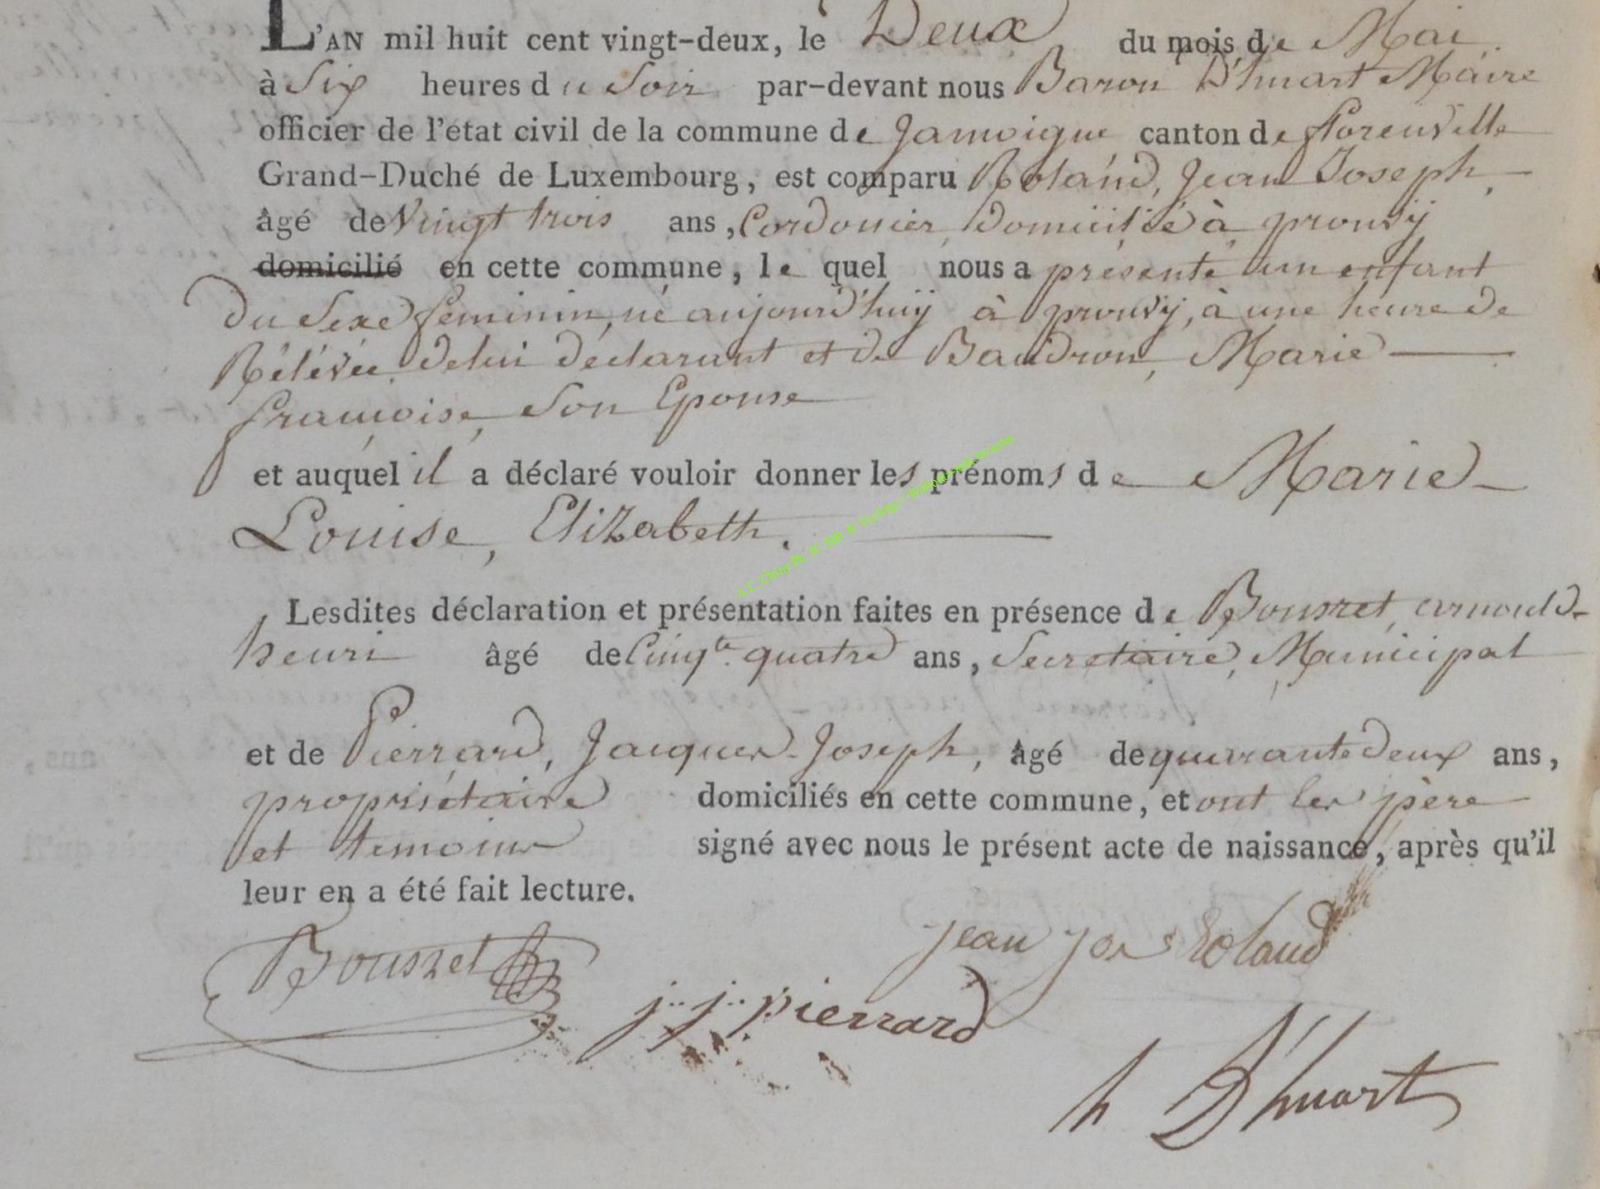 L'AN mil huit cent vingt-deux, le Deux du mois de Mai
à Six heures du Soir par-devant nous Baron D'huart Maire
officier de l'état civil de la commune de Jamoigne canton de florenville
Grand-Duché de Luxembourg, est comparu Roland, Jean Joseph,
âgé de Vingt trois ans, Cordonier, domicilié à prouvÿ
domicilié en cette commune, le quel nous a présenté un enfant
du Sexe feminin, né aujourd'huÿ à prouvÿ, à une heure de
Rélévée, de lui déclarant et de Baudron, Marie
françoise, Son Epouse
et auquel il a déclaré vouloir donner les prénoms de Marie
Louise, Elizabeth.
Lesdites déclaration et présentation faites en présence de Bousret, arnould
henri âgé de Cinqte. quatre ans, Secretaire, Municipal
et de Pierrard, Jacques Joseph, âgé de quarante deux ans,
propriétaire domiciliés en cette commune, et ont les père
et temoins signé avec nous le présent acte de naissance, après qu'il
leur en a été fait lecture.
Bousret Jean Jos Roland
j. j. pierrard
h D'huart